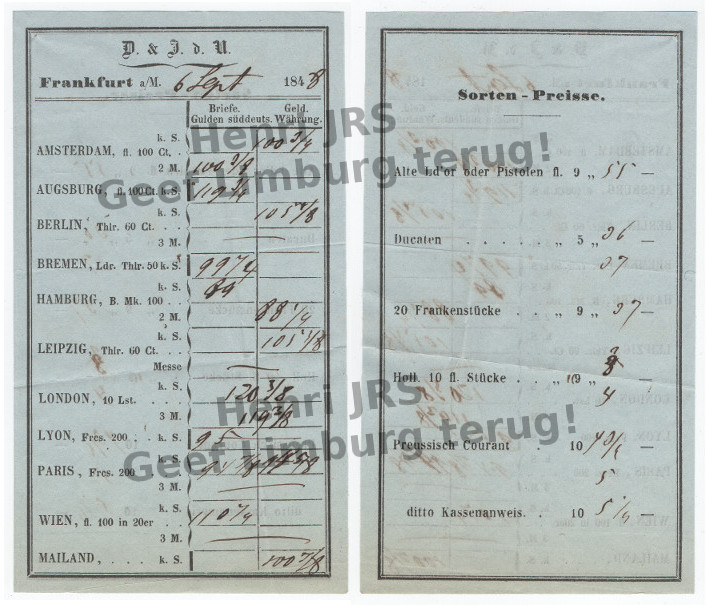 D. & J. d. N.
Frankfurt a/M. 6 Sept 1848
Briefe. Geld.
Gulden süddeuts. Währung.
k. S. 100 3/4
AMSTERDAM, fl. 100 Ct. .
2 M. 100 3/8
AUGSBURG, fl. 100 Ct. k. S.
k. S. 105 1/8
BERLIN, Thlr. 60 Ct. . .
3 M.
BREMEN, Ldr. Thlr. 50 k. S.
k. S.
HAMBURG, B. Mk. 100 . .
2 M. 88 1/4
k. S. 105 1/8
LEIPZIG, Thlr. 60 Ct. . .
Messe
k. S. 120 3/8
LONDON, 10 Lst. . . .
3 M. 119 3/8
LYON, Frcs. 200 . . k. S.
k. S.
PARIS, Frcs. 200
3 M.
k. S.
WIEN, fl. 100 in 20er . .
3 M.
MAILAND, . . . . k. S. 100 7/8
Sorten-Preisse.
Alte Ld'or oder Pistolen fl. 9 „ 55 —
Ducaten . . . . . „ 5 „ 36 —
37
20 Frankenstücke . . „ 9 „ 37 —
Holl. 10 fl. Stücke . . „ 9 „
4
Preussisch Courant . 10
5
ditto Kassenanweis. . 10 5 1/4 —
Henri JRS
Geef Limburg terug!
Henri JRS
Geef Limburg terug!